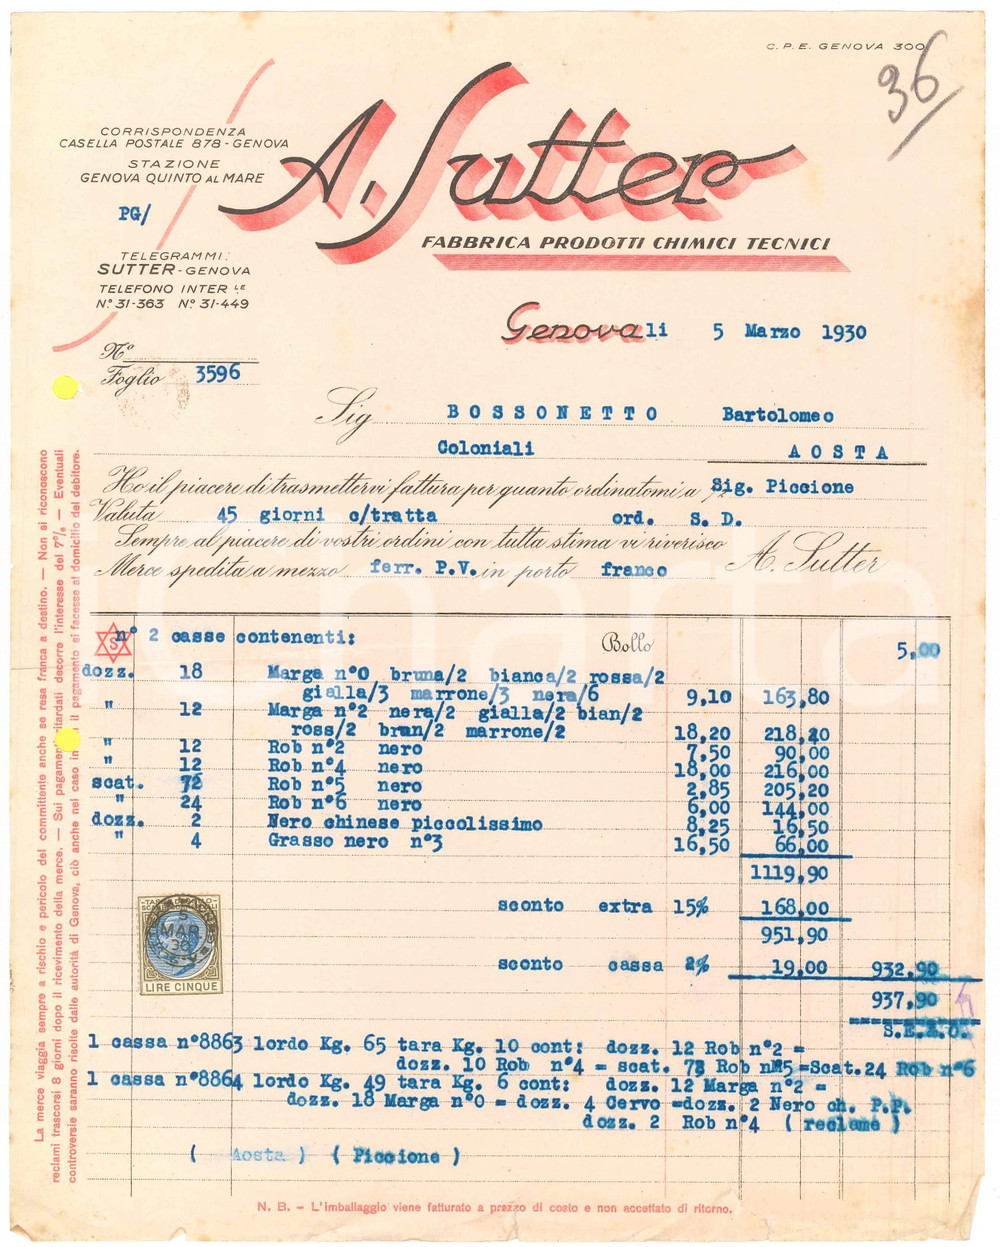 C.P.E. GENOVA 300
36
CORRISPONDENZA
CASELLA POSTALE 878 - GENOVA
STAZIONE
GENOVA QUINTO AL MARE
PG/
A. Sutter
FABBRICA PRODOTTI CHIMICI TECNICI
TELEGRAMMI:
SUTTER - GENOVA
TELEFONO INTER LE
N.° 31-363 N.° 31-449
Genova li 5 Marzo 1930
N.°
Foglio 3596
Sig BOSSONETTO Bartolomeo
Coloniali AOSTA
Ho il piacere di trasmettervi fattura per quanto ordinatomi a Sig. Piccione
Valuta 45 giorni c/tratta ord. S. D.
Sempre al piacere di vostri ordini con tutta stima vi riverisco
A. Sutter
Merce spedita a mezzo ferr. P.V. in porto franco
S
n° 2 casse contenenti: Bollo 5,00
dozz. 18 Marga n°0 bruna/2 bianca/2 rossa/2
gialla/3 marrone/3 nera/6 9,10 163,80
" 12 Marga n°2 nera/2 gialla/2 bian/2
ross/2 brun/2 marrone/2 18,20 218,40
" 12 Rob n°2 nero 7,50 90,00
" 12 Rob n°4 nero 18,00 216,00
scat. 72 Rob n°5 nero 2,85 205,20
" 24 Rob n°6 nero 6,00 144,00
dozz. 2 Nero chinese piccolissimo 8,25 16,50
" 4 Grasso nero n°3 16,50 66,00
1119,90
sconto extra 15% 168,00
951,90
sconto cassa 2% 19,00 932,90
937,90
S.E.&O.
5
MAR
30
LIRE CINQUE
1 cassa n°8863 lordo Kg. 65 tara Kg. 10 cont: dozz. 12 Rob n°2 =
dozz. 10 Rob n°4 = scat. 72 Rob n°5 =Scat.24 Rob n°6
1 cassa n°8864 lordo Kg. 49 tara Kg. 6 cont: dozz. 12 Marga n°2 =
dozz. 18 Marga n°0 = dozz. 4 Cervo =dozz. 2 Nero ch. P.P.
dozz. 2 Rob n°4 ( reclame )
( Aosta ) ( Piccione )
N. B. - L'imballaggio viene fatturato a prezzo di costo e non accettato di ritorno.
La merce viaggia sempre a rischio e pericolo del committente anche se resa franca a destino. — Non si riconoscono
reclami trascorsi 8 giorni dopo il ricevimento della merce. — Sui pagamenti ritardati decorre l'interesse del 7% — Eventuali
controversie saranno risolte dalle autorità di Genova, ciò anche nel caso in il pagamento si facesse al domicilio del debitore.